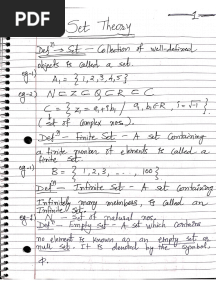 PDF
1
Set Theory
Defⁿ → Set – Collection of well-defined
objects is called a set.
eg-1) A₁ = {1, 2, 3, 4, 5}
eg-2) N ⊂ Z ⊂ Q ⊂ R ⊂ C
C = { z = a+ib / a, b ∈ R, i = √-1 }
(set of complex nos.)
Defⁿ – Finite Set – A set containing
a finite number of elements is called a
finite set.
eg-1) B = {1, 2, 3, ..., 100}
Defⁿ – Infinite Set – A set containing
Infinitely many members, is called an
Infinite set.
eg-1 N – Set of natural nos.
Defⁿ – Empty set – A set which contains
no element is known as an empty set or
null set. It is denoted by the symbol,
φ.